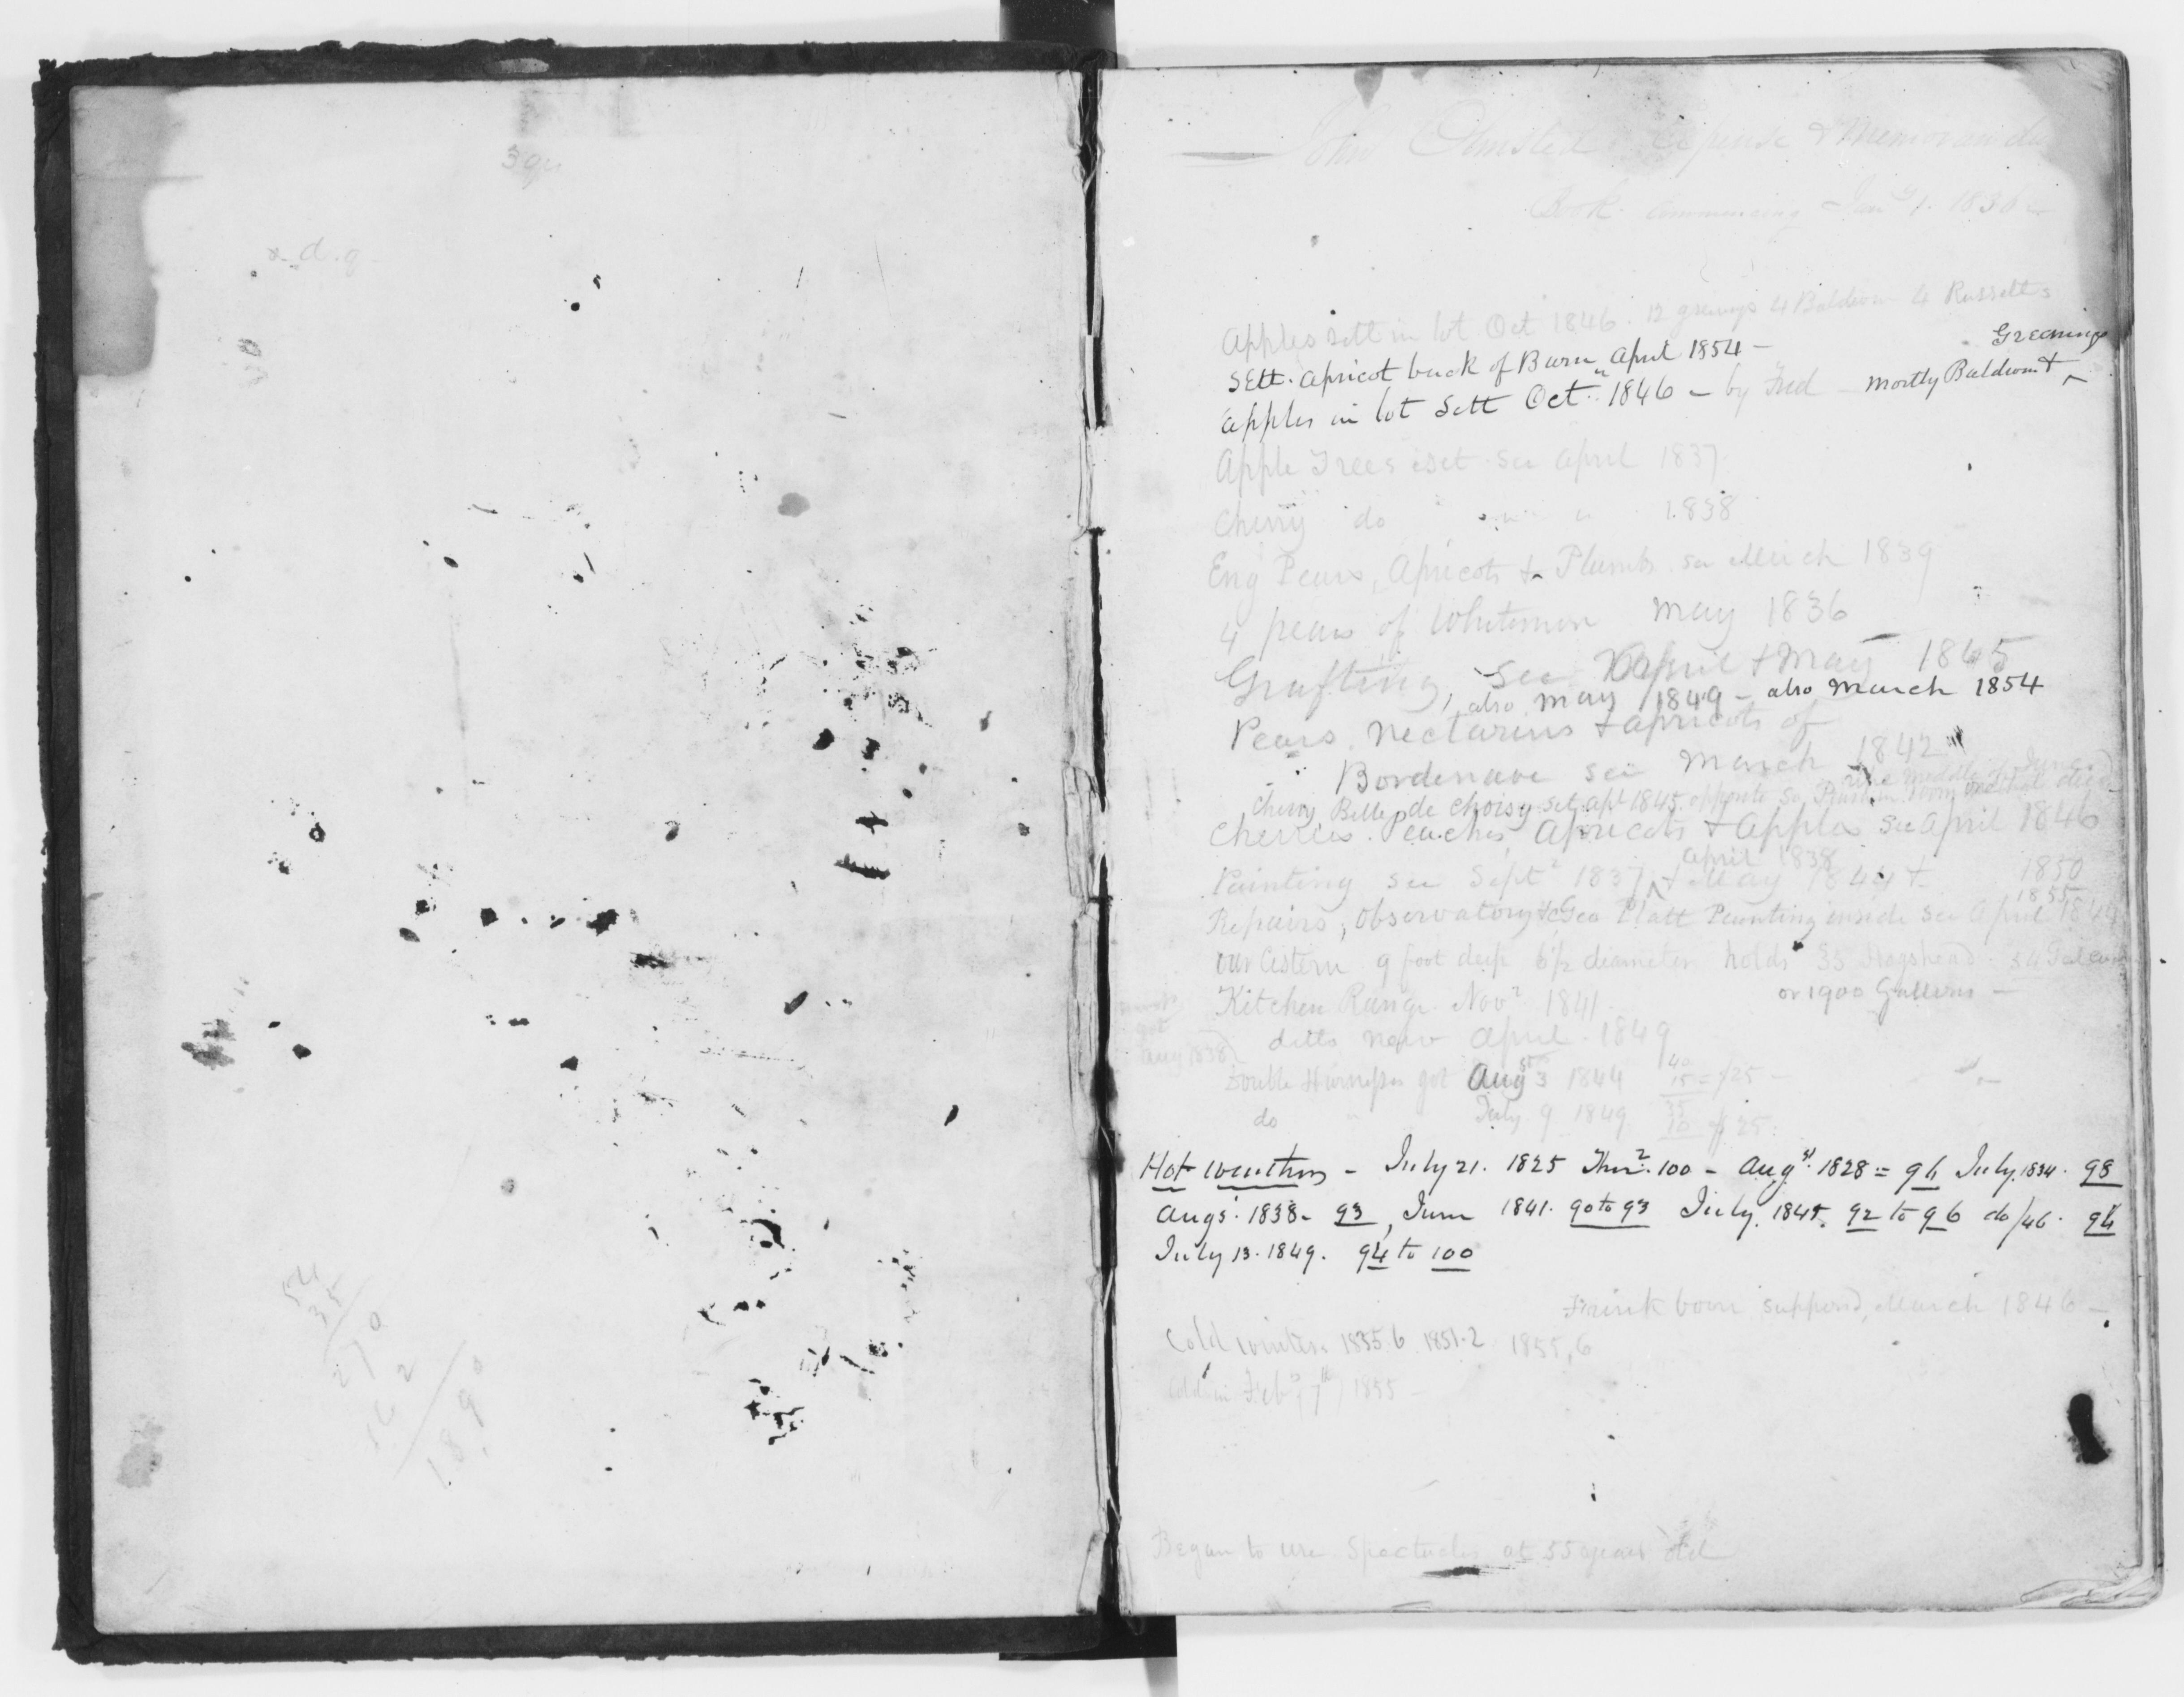 3 qr
54
35
270
162
1890
John Olmsted Expense & Memoranda
Book Commencing Jan 1. 1836
Apples sett in lot Oct 1846. 12 greenings 4 Baldwin 4 Russetts
Sett. Apricot back of Barn April 1854 -
Greenings
Apples in lot Sett Oct. 1846 - by Fred - mostly Baldwin &
Apple Trees set. See April 1837.
Cherry do " " 1838
Eng Pears, Apricots & Plumbs. see March 1839
4 pears of Whitmore May 1836
Grafting, See April & May 1845
also may 1849 - also March 1854
Pears. Nectarins & apricots of
Bordenave see March 1842
Cherry Belle de Choisy set apl 1845 opposite
Cherries. Peaches, Apricots & Apples See April 1846
April 1838
Painting see Sept 1837 & May 1844 & 1850
1855
Repairs, Observatory &c Geo Platt Painting inside see April 1849
our Cistern 9 foot deep 6½ diameter holds 35 Hogshead. 54 Gallons
or 1900 Gallons -
Kitchen Range. Nov 1841.
Aug 1838
ditto new April. 1849
Double Harnesses got Aug 3 1844 40 15 = $25 -
do " July 9 1849 35 10 $25.
Hot weather - July 21. 1825 Ther. 100 - Augst. 1828 = 96 July. 1834. 98
Augs. 1838. 93, June 1841. 90 to 93 July. 1845. 92 to 96 do/46. 94
July 13. 1849. 94 to 100
Frink born supposed, March 1846 -
Cold winters 1835.6 1851.2 1855,6
Cold in Feb (7th) 1855 -
Began to use Spectacles at 55 years old